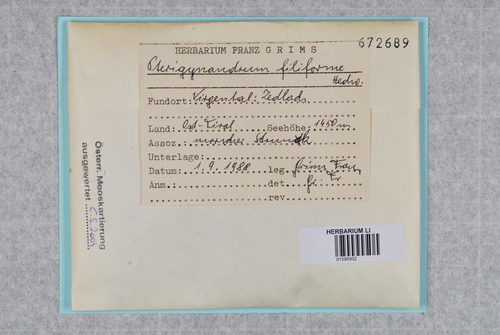 672689
HERBARIUM FRANZ GRIMS
Pterigynandrum filiforme
Hedw.
Fundort: Virgental: Zedlach
Land: Ost-Tirol Seehöhe: 1450m
Assoz. morscher Strunk
Unterlage:
Datum: 1.9.1988 leg. Grims Franz
Anm.: det. Gr. Fr.
rev.
Österr. Mooskartierung
ausgewertet
HERBARIUM LI
01590932